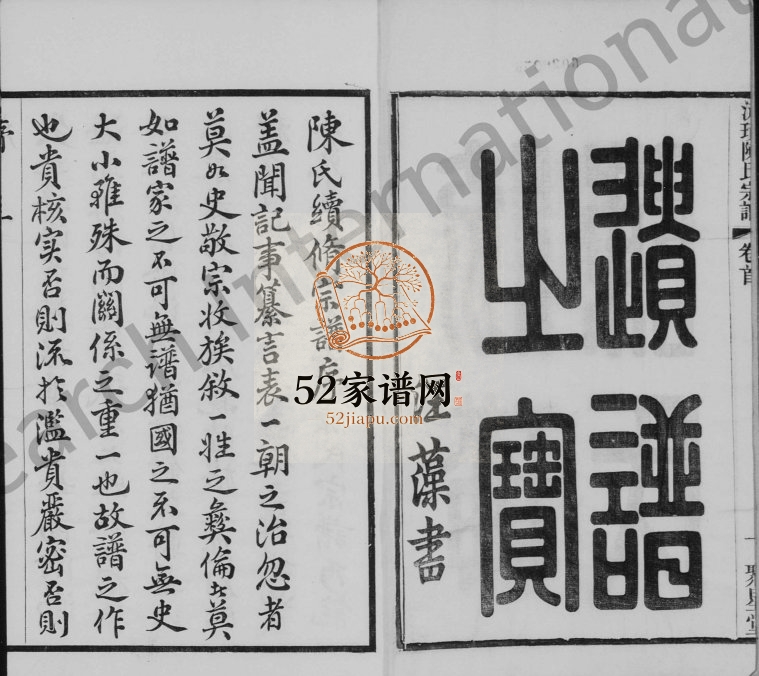 陳氏宗譜 卷首 一 聚星堂
遺譜
之寶
藻書
陳氏續修宗譜序
盖聞記事纂言表一朝之治忽者
莫如史敬宗收族敘一姓之彝倫者莫
如譜家之不可無譜猶國之不可無史
大小雖殊而關係之重一也故譜之作
也貴核实否則流於濫貴嚴密否則
序 一
52家谱网
52jiapu.com
earch International